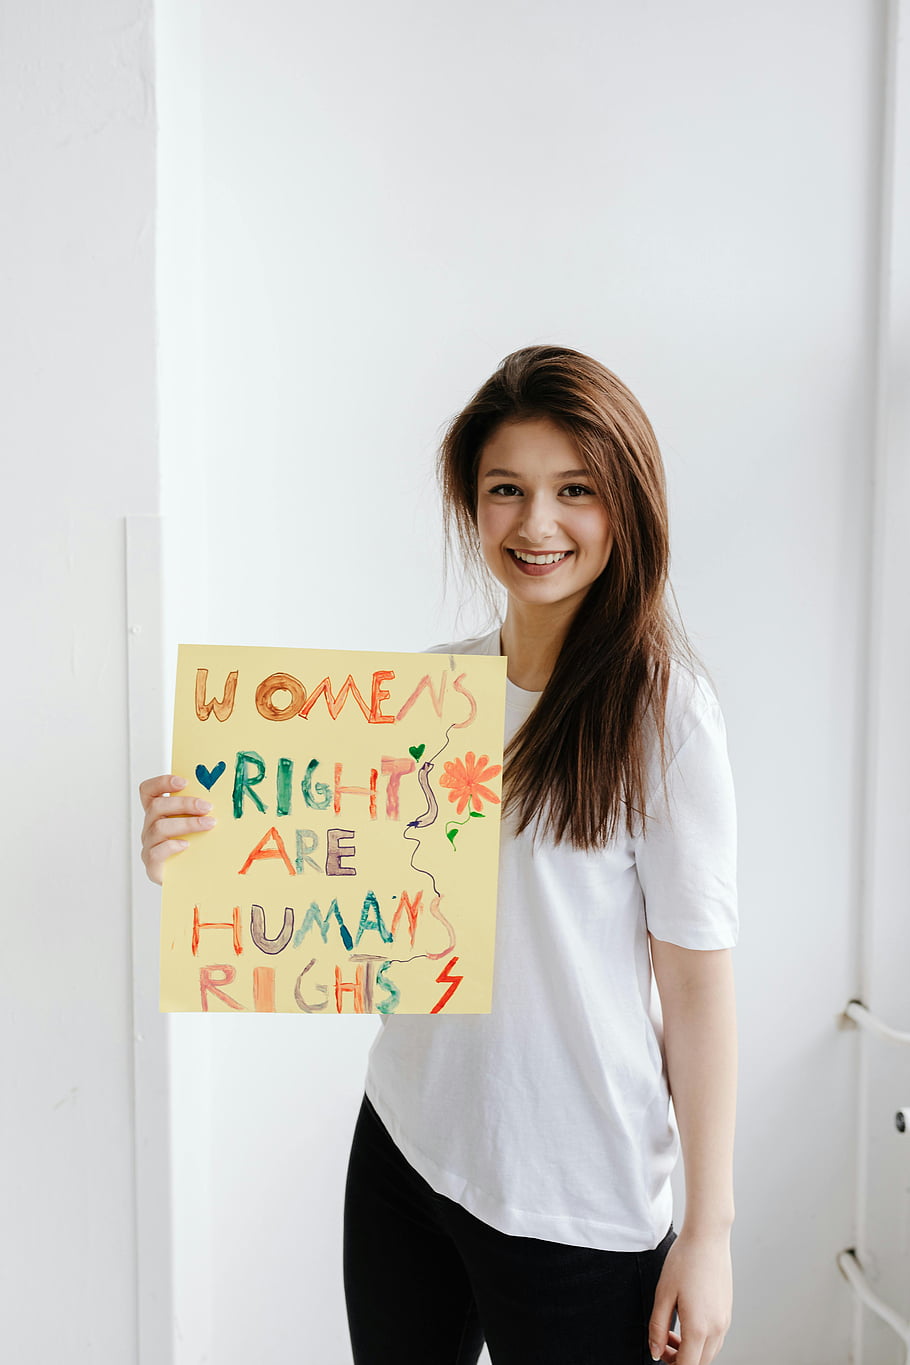 WOMEN'S
RIGHT'S
ARE
HUMAN'S
RIGHTS